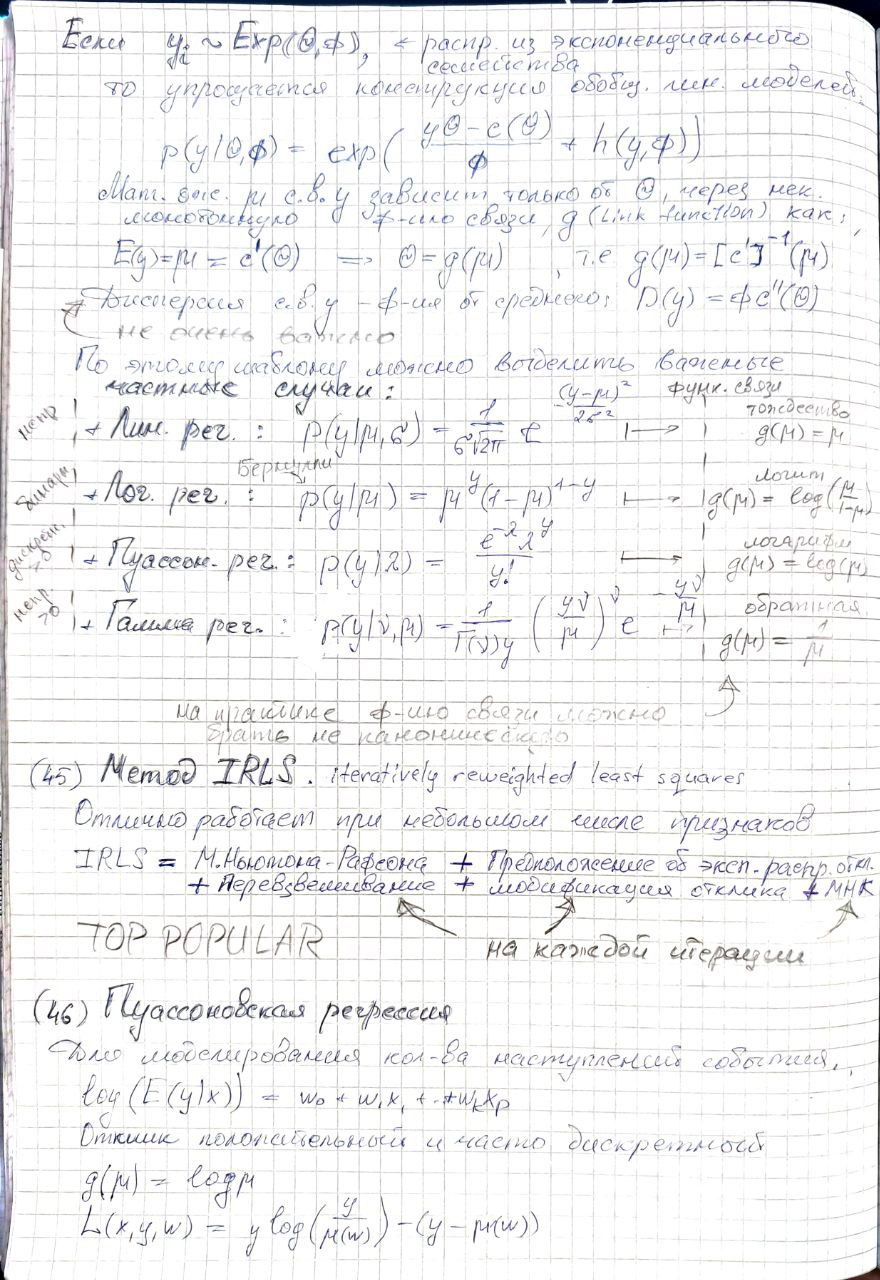 Если yᵢ ~ Exp(Θ,ϕ), ← распр. из экспоненциального семейства
то упрощается конструкция обобщ. лин. моделей:
p(y|Θ,ϕ) = exp( (yΘ - c(Θ))/ϕ + h(y,ϕ))
Мат. ож. μ с.в. y зависит только от Θ, через нек.
монотонную ф-ию связи, g (link function) как:
E(y)=μ = c'(Θ) ⟹ Θ = g(μ), т.е g(μ)=[c']⁻¹(μ)
Дисперсия с.в. y - ф-ия от среднего: D(y) = ϕc''(Θ)
не очень важно
По этому шаблону можно выделить важные
частные случаи:
функ. связи
непр + Лин. рег.: p(y|μ,σ) = 1/(σ√2π) e^((y-μ)²/2σ²) ↦ тождество g(μ) = μ
бинарн + Лог. рег.: Бернулли p(y|μ) = μ^y (1-μ)^(1-y) ↦ логит g(μ) = log(μ/(1-μ))
дискретн. >0 + Пуассон. рег.: p(y|λ) = e^(-λ) λ^y / y! ↦ логарифм g(μ) = log(μ)
непр >0 + Гамма рег.: p(y|ν,μ) = 1/(Γ(ν)y) (yν/μ)^ν e^(-yν/μ) ↦ обратная g(μ) = 1/μ
на практике ф-ию связи можно
брать не каноническую
(45) Метод IRLS. iteratively reweighted least squares
Отлично работает при небольшом числе признаков
IRLS = М.Ньютона-Рафсона + Предположение об эксп. распр. откл.
+ Перевзвешивание + модификация отклика + МНК
TOP POPULAR на каждой итерации
(46) Пуассоновская регрессия
Для моделирования кол-ва наступлений события.
log(E(y|x)) = w₀ + w₁x₁ + .. + wₖxₚ
Отклик положительный и часто дискретный
g(μ) = log μ
L(x,y,w) = y log(y/μ(w)) - (y - μ(w))